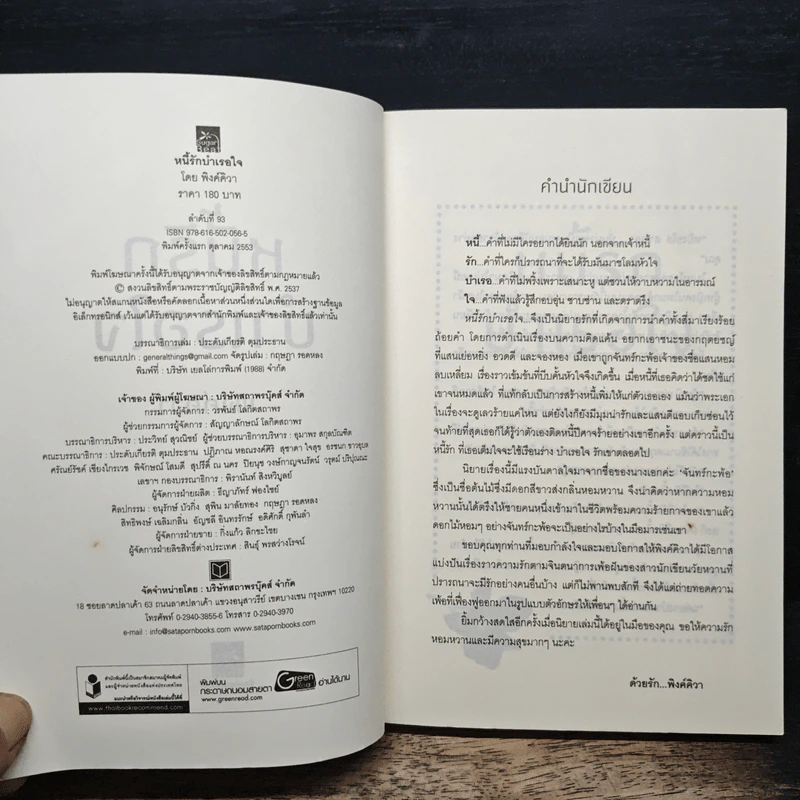 Sugar Beat
หนี้รักบำเรอใจ
โดย พิงค์คิวา
ราคา 180 บาท
ลำดับที่ 93
ISBN 978-616-502-056-5
พิมพ์ครั้งแรก ตุลาคม 2553
พิมพ์โฆษณาครั้งนี้ได้รับอนุญาตจากเจ้าของลิขสิทธิ์ตามกฎหมายแล้ว
© สงวนลิขสิทธิ์ตามพระราชบัญญัติลิขสิทธิ์ พ.ศ. 2537
ไม่อนุญาตให้สแกนหนังสือหรือคัดลอกเนื้อหาส่วนหนึ่งส่วนใดเพื่อการสร้างฐานข้อมูล
อิเล็กทรอนิกส์ เว้นแต่ได้รับอนุญาตจากสำนักพิมพ์และเจ้าของลิขสิทธิ์แล้วเท่านั้น
บรรณาธิการเล่ม : ประดับเกียรติ ตุมประธาน
ออกแบบปก : generalthings@gmail.com จัดรูปเล่ม : กฤษฎา รอดหลง
พิมพ์ที่ : บริษัท เยลโล่การพิมพ์ (1988) จำกัด
เจ้าของ ผู้พิมพ์ผู้โฆษณา : บริษัทสถาพรบุ๊คส์ จำกัด
กรรมการผู้จัดการ : วรพันธ์ โลกิตสถาพร
ผู้ช่วยกรรมการผู้จัดการ : สัญญาลักษณ์ โลกิตสถาพร
บรรณาธิการบริหาร : ประวิทย์ สุวณิชย์ ผู้ช่วยบรรณาธิการบริหาร : อุมาพร สกุลบัณฑิต
คณะบรรณาธิการ : ประดับเกียรติ ตุมประธาน ปฏิภาณ หอณรงค์ศิริ สุชาดา ใจสุข อรชนก ชาวอุบล
ศรัณย์รัชต์ เชียงไกรเวช พิจักษณ์ โสมดี สุปรีดี ณ นคร ปิยนุช วงษ์กาญจนรัตน์ วรุตม์ ปริปุณณะ
เลขาฯ กองบรรณาธิการ : พิรานันท์ สิงหวิบูลย์
ผู้จัดการฝ่ายผลิต : ธีญาภัทร์ ฟองไชย์
ศิลปกรรม : อนุรักษ์ บัวกิ่ง สุพิน มาลัยทอง กฤษฎา รอดหลง
สิทธิพงษ์ เฉลิมกลิ่น อัญชลี อินทรรักษ์ อดิศักดิ์ กูพันลำ
ผู้จัดการฝ่ายขาย : กิ่งแก้ว ลิกขะไชย
ผู้จัดการฝ่ายลิขสิทธิ์ต่างประเทศ : สินธุ์ พรสว่างโรจน์
จัดจำหน่ายโดย : บริษัทสถาพรบุ๊คส์ จำกัด
18 ซอยลาดปลาเค้า 63 ถนนลาดปลาเค้า แขวงอนุสาวรีย์ เขตบางเขน กรุงเทพฯ 10220
โทรศัพท์ 0-2940-3855-6 โทรสาร 0-2940-3970
e-mail : info@satapornbooks.com, www.satapornbooks.com
สำนักพิมพ์นี้เป็นสมาชิกสมาคมผู้จัดพิมพ์
และผู้จำหน่ายหนังสือแห่งประเทศไทย
www.thaibookrecommend.com
พิมพ์บน
กระดาษถนอมสายตา
www.greenread.com
Green Read
อ่านได้นาน
คำนำนักเขียน
หนี้...คำที่ไม่มีใครอยากได้ยินนัก นอกจากเจ้าหนี้
รัก...คำที่ใครก็ปรารถนาที่จะได้รับมันมาชโลมหัวใจ
บำเรอ...คำที่ไม่พริ้งเพราะเสนาะหู แต่ชวนให้วาบหวามในอารมณ์
ใจ...คำที่ฟังแล้วรู้สึกอบอุ่น ซาบซ่าน และตราตรึง
หนี้รักบำเรอใจ...จึงเป็นนิยายรักที่เกิดจากการนำคำทั้งสี่มาเรียงร้อย
ถ้อยคำ โดยการดำเนินเรื่องบนความคิดแค้น อยากเอาชนะของกฤตยชญ์
ที่แสนเย่อหยิ่ง อวดดี และจองหอง เมื่อเขาถูกจันทร์กะพ้อเจ้าของชื่อแสนหอม
ลบเหลี่ยม เรื่องราวเข้มข้นที่บีบคั้นหัวใจจึงเกิดขึ้น เมื่อหนี้ที่เธอคิดว่าได้ชดใช้แก่
เขาจนหมดแล้ว ที่แท้กลับเป็นการสร้างหนี้เพิ่มให้แก่ตัวเธอเอง แม้ว่าพระเอก
ในเรื่องจะดูเลวร้ายแค่ไหน แต่ยังไงก็ยังมีมุมน่ารักและแสนดีแอบเก็บซ่อนไว้
จนท้ายที่สุดเธอก็ได้รู้ว่าตัวเองติดหนี้ปีศาจร้ายอย่างเขาอีกครั้ง แต่คราวนี้เป็น
หนี้รัก ที่เธอเต็มใจจะใช้เรือนร่าง บำเรอใจ รักเขาตลอดไป
นิยายเรื่องนี้มีแรงบันดาลใจมาจากชื่อของนางเอกค่ะ 'จันทร์กะพ้อ'
ซึ่งเป็นชื่อต้นไม้ซึ่งมีดอกสีขาวส่งกลิ่นหอมหวาน จึงน่าคิดว่าหากความหอม
หวานนั้นได้ตรึงให้ชายคนหนึ่งเข้ามาในชีวิตพร้อมความร้ายกาจของเขาแล้ว
ดอกไม้หอมๆ อย่างจันทร์กะพ้อจะเป็นอย่างไรบ้างในมือมารเช่นเขา
ขอบคุณทุกท่านที่มอบกำลังใจและมอบโอกาสให้พิงค์คิวาได้มีโอกาส
แบ่งปันเรื่องราวความรักตามจินตนาการเพ้อฝันของสาวนักเขียนวัยหวานที่
ปรารถนาจะมีรักอย่างคนอื่นบ้าง แต่ก็ไม่พานพบสักที จึงได้แต่ถ่ายทอดความ
เพ้อที่เฟื่องฟูออกมาในรูปแบบตัวอักษรให้เพื่อนๆ ได้อ่านกัน
ยิ้มกว้างสดใสอีกครั้งเมื่อนิยายเล่มนี้ได้อยู่ในมือของคุณ ขอให้ความรัก
หอมหวานและมีความสุขมากๆ นะคะ
ด้วยรัก...พิงค์คิวา